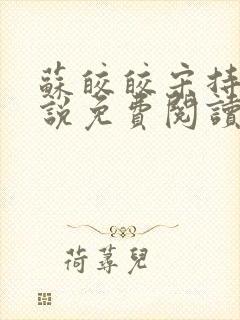 蘇皎皎宋持
說免費閱讀
荷蕁兒